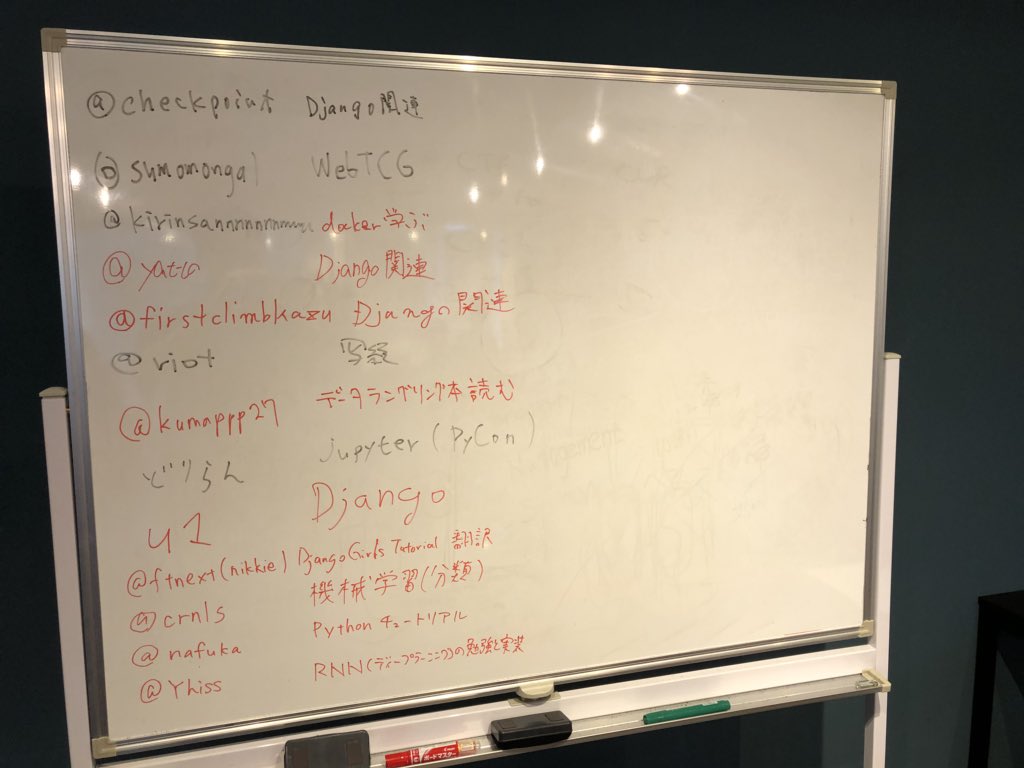 @checkpoint Django関連
@sumomonga WebTCG
@kirinsannnnnnnnn docker学ぶ
@yata Django関連
@firstclimbkazu Django関連
@riot 写経
@kumappp27 データラングリング本読む
どりらん jupyter(PyCon)
u1 Django
@ftnext(nikkie) DjangoGirls Tutorial 翻訳
@crnls 機械学習(分類)
@nafuka Pythonチュートリアル
@Yhiss RNN(ディープラーニング)の勉強と実装
ボードマスター